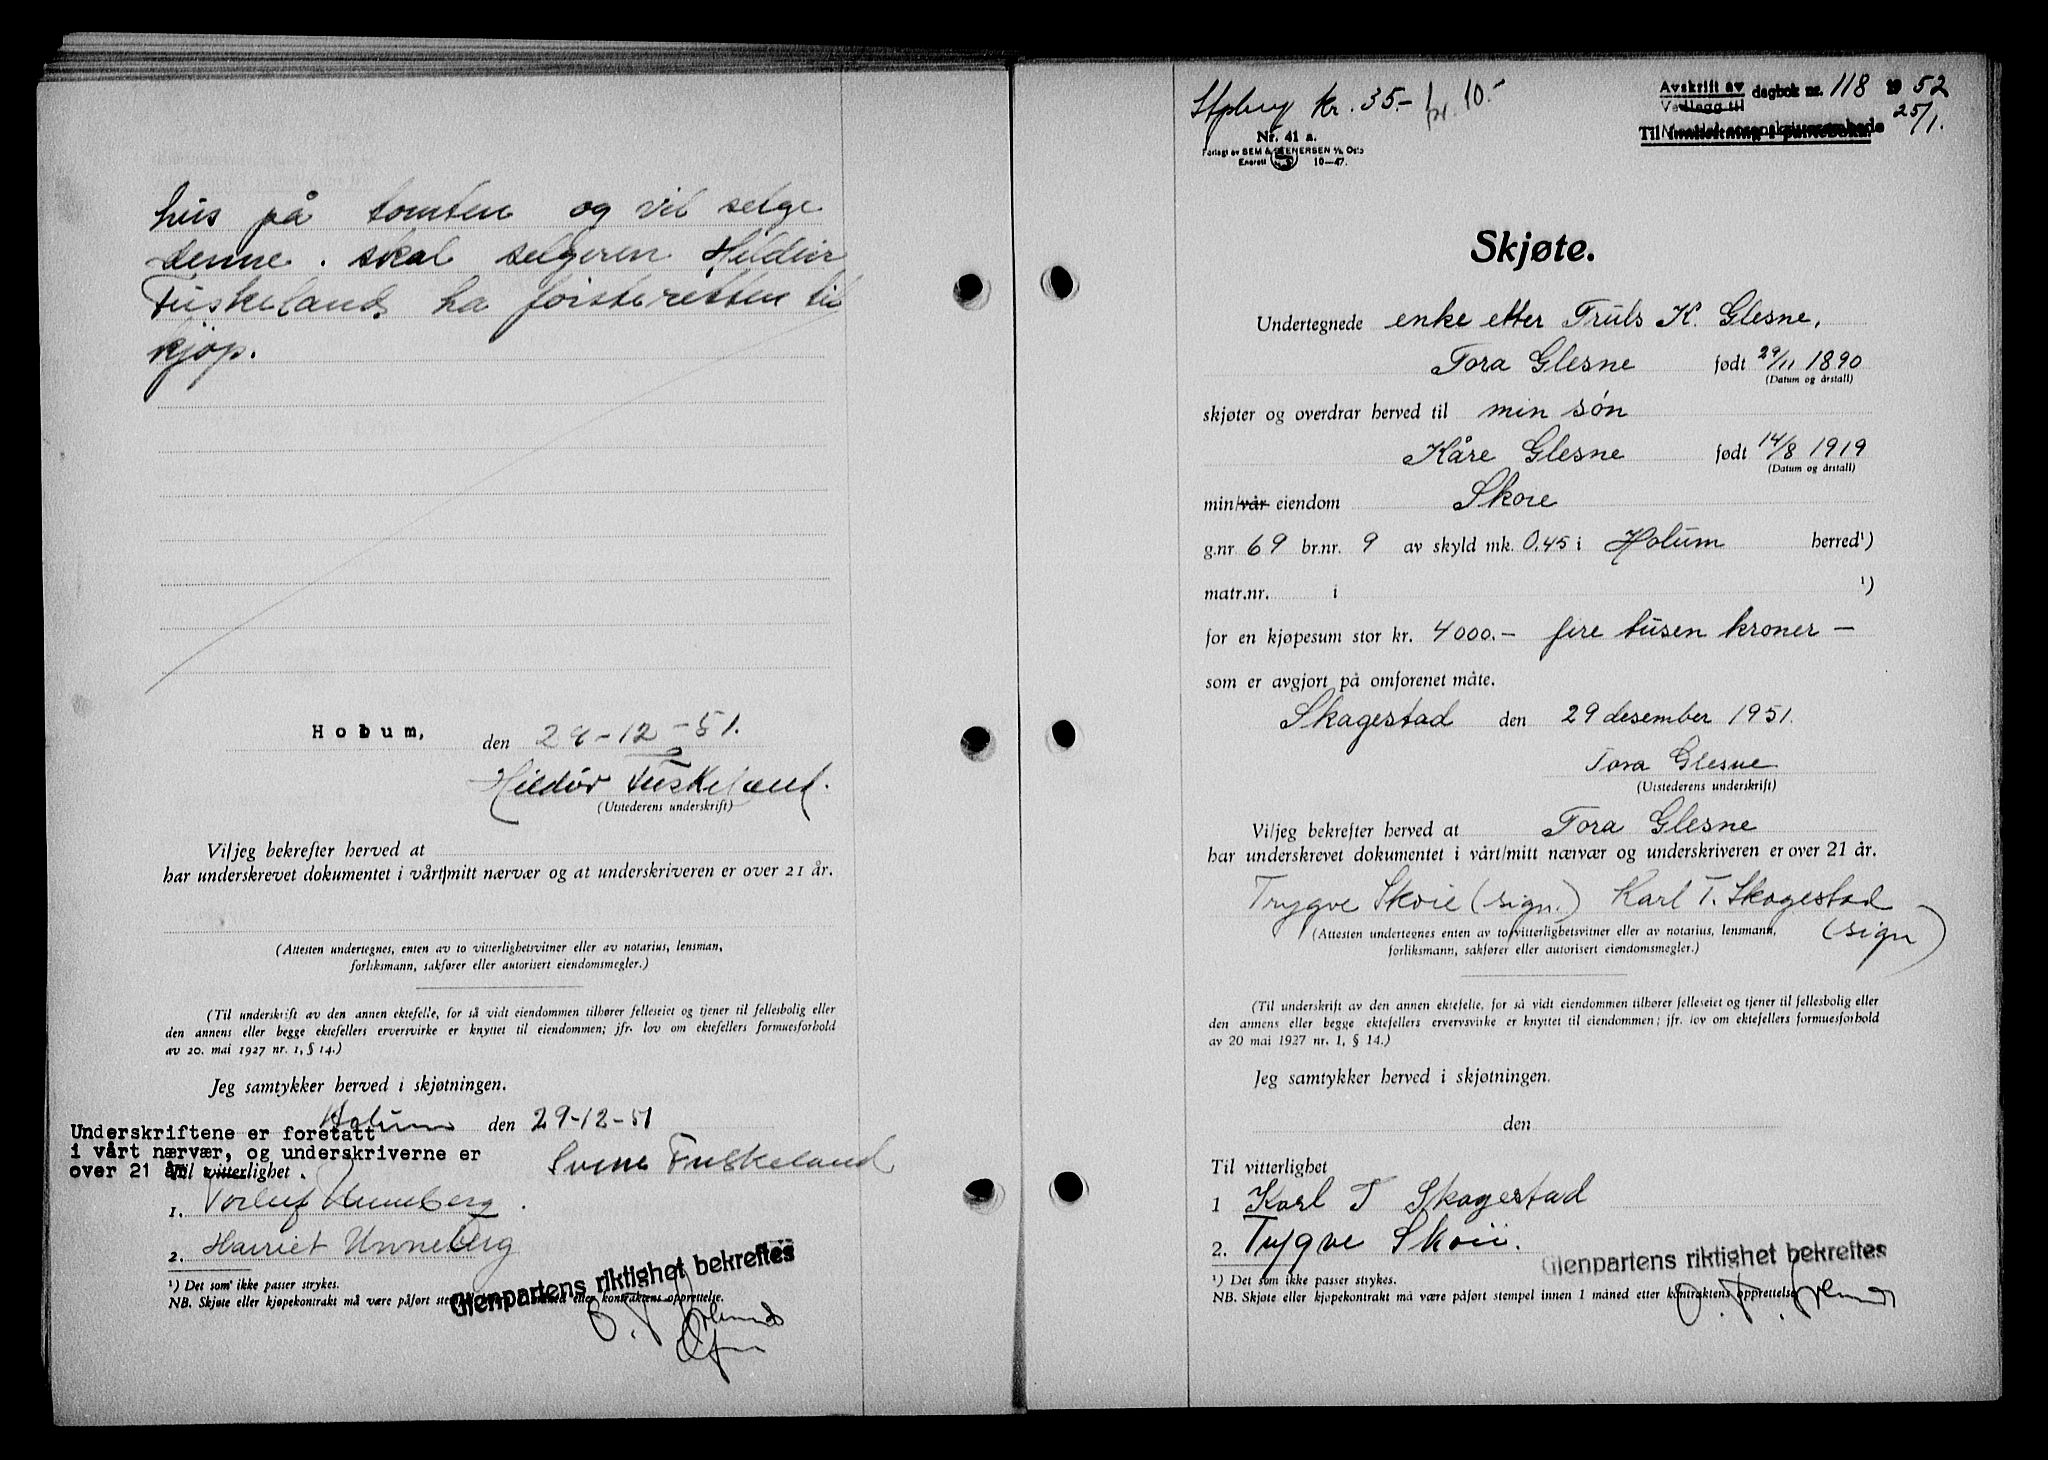 hus på tomten og vil selge
denne. skal selgeren Hildur
Fuskeland, ha førsteretten til
kjøp.
Holum, den 29-12-51.
Hildur Fuskeland.
(Utstederens underskrift)
Vi/jeg bekrefter herved at
har underskrevet dokumentet i vårt/mitt nærvær og at underskriveren er over 21 år.
(Attesten undertegnes, enten av to vitterlighetsvitner eller av notarius, lensman,
forliksmann, sakfører eller autorisert eiendomsmegler.)
(Til underskrift av den annen ektefelle, for så vidt eiendommen tilhører felleseiet og tjener til fellesbolig eller
den annens eller begge ektefellers ervervsvirke er knyttet til eiendommen; jfr. lov om ektefellers formuesforhold
av 20. mai 1927 nr. 1, § 14.)
Jeg samtykker herved i skjøtningen.
Holum den 29-12-51
Underskriftene er foretatt
i vårt nærvær, og underskriverne er
over 21 år. Til vitterlighet.
Fuskeland
1. Torleif Unneberg.
2. Harriet Unneberg
Glenpartens riktighet bekreftes
¹) Det som ikke passer strykes.
NB. Skjøte eller kjøpekontrakt må være påført kontraktens opprettelse.
kr. 35.- kr. 10.-
Nr. 41 a.
Forlagt av SEM & STENERSEN A/S, Oslo
Enerett S 10-47.
Avskrift av
Vedlegg til dagbok nr. 118 1952
25/1.
Skjøte.
Undertegnede enke etter Truls K. Glesne,
Tora Glesne født 29/11 1890
(Datum og årstall)
skjøter og overdrar herved til min søn
Kåre Glesne født 14/8 1919
(Datum og årstall)
min/vår eiendom Skoie
g.nr 69 br.nr. 9 av skyld mk. 0.45 i Holum herred¹)
matr.nr. i ¹)
for en kjøpesum stor kr. 4000.- fire tusen kroner —
som er avgjort på omforenet måte.
Skagestad den 29 desember 1951.
Tora Glesne
(Utstederens underskrift)
Vi/jeg bekrefter herved at Tora Glesne
har underskrevet dokumentet i vårt/mitt nærvær og underskriveren er over 21 år.
Trygve Skoie (sign.) Karl T. Skagestad
(sign)
(Attesten undertegnes enten av to vitterlighetsvitner eller av notarius, lensmann,
forliksmann, sakfører eller autorisert eiendomsmegler.)
(Til underskrift av den annen ektefelle, for så vidt eiendommen tilhører felleseiet og tjener til fellesbolig eller
den annens eller begge ektefellers ervervsvirke er knyttet til eiendommen; jfr. lov om ektefellers formuesforhold
av 20 mai 1927 nr. 1, § 14.)
Jeg samtykker herved i skjøtningen.
den
Til vitterlighet
1 Karl T Skagestad
2. Tygve Skoie.
Glenpartens riktighet bekreftes
¹) Det som ikke passer strykes.
NB. Skjøte eller kjøpekontrakt må være påført stempel innen 1 måned etter kontraktens opprettelse.